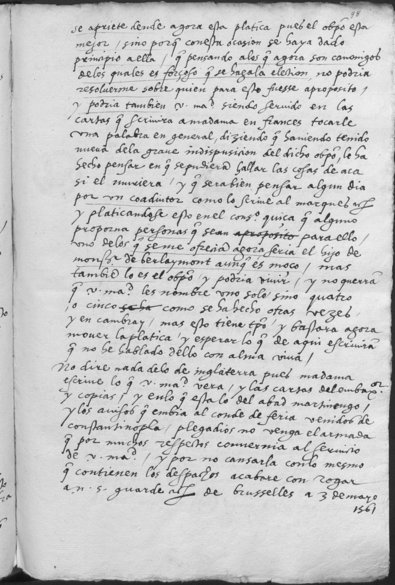 98
se apriete dende agora esta platica pues el obpo esta
mejor, sino porq̃ con esta ocasion se haya dado
principio a ella, q̃ pensando a los q̃ agora son canonigos
de los quales es forçoso q̃ se haga la election, no podria
resolverme sobre quien para esto fuesse aproposito,
y podria tambien v. mad siendo servido en las
cartas q̃ scrivira a madama en frances tocarle
una palabra en general, diziendo q̃ haviendo tenido
nueva de la grave indispusicion del dicho obpo, lo ha
hecho pensar en q̃ se pudieran hallar las cosas de aca
si el muriera, y q̃ sera bien pensar algun dia
por un coadiutor como lo scrive al marques
y platicandose esso en el conso quiça q̃ alguno
proporna personas q̃ sean aproposito para ello,
uno de los q̃ se me ofreceria agora seria el hijo de
monsor de berlaymont aunq̃ es moço, mas
tambien lo es el obpo, y podria vivir, y no querria
q̃ v. mad les nombre uno solo, sino quatro
o cinco como se ha hecho otras vezes,
y en cambray, mas esto tiene tpo, y bastara agora
mover la platica, y esperar lo q̃ de aqui escriviran
q̃ no he hablado dello con alma viva,
No dire nada de lo de inglaterra pues madama
escrive lo q̃ v. mad vera, y las cartas del embaxor
y copias, y en lo q̃ esta lo del abad martinengo,
y los avisos q̃ embia al conde de feria venidos de
constantinopla, plega dios no venga el armada
q̃ por muchos respetos convernia al servicio
de v. mad, y por no cansarla con lo mesmo
q̃ contienen los despachos acabare con rogar
a n. s. guarde de brusselles a 3 de mayo
1561